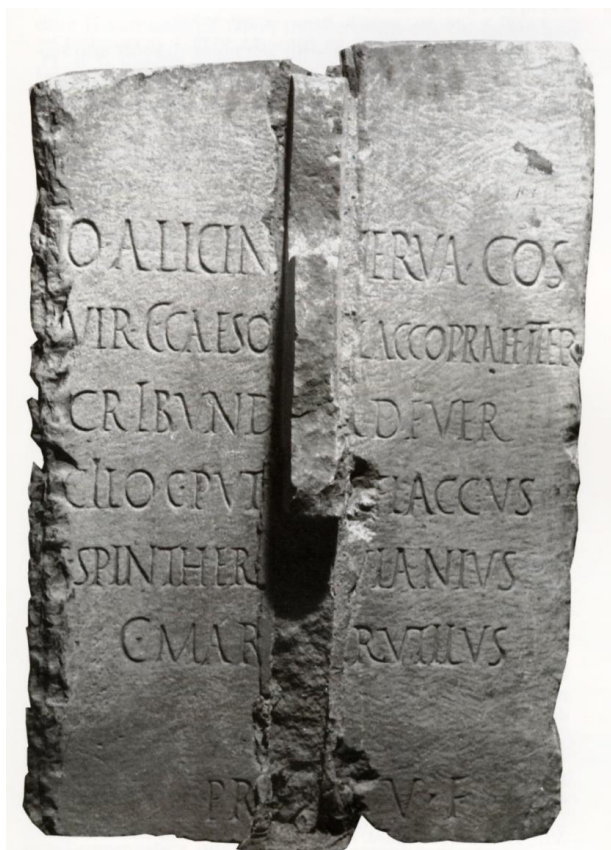 O · A LICIN ERVA · COS
VIR · C CAESO LACCO PRAEF
CRIBVND D FVER
CILO C PVT FLACCVS
SPINTHER VIANIVS
C MAR RVTILVS
PR V · F